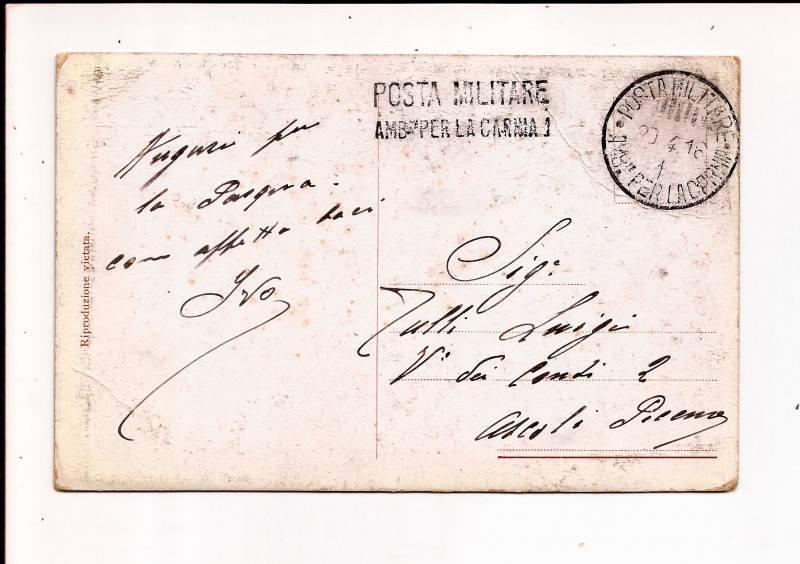 POSTA MILITARE
AMB. PER LA CARNIA 1
POSTA MILITARE
20 4 16
1
AMB. PER LA CARNIA
Auguri per
la Pasqua.
con affetto baci
Ivo
Sig.
Tulli Luigi
V. dei Conti 2
Ascoli Piceno
Riproduzione vietata.